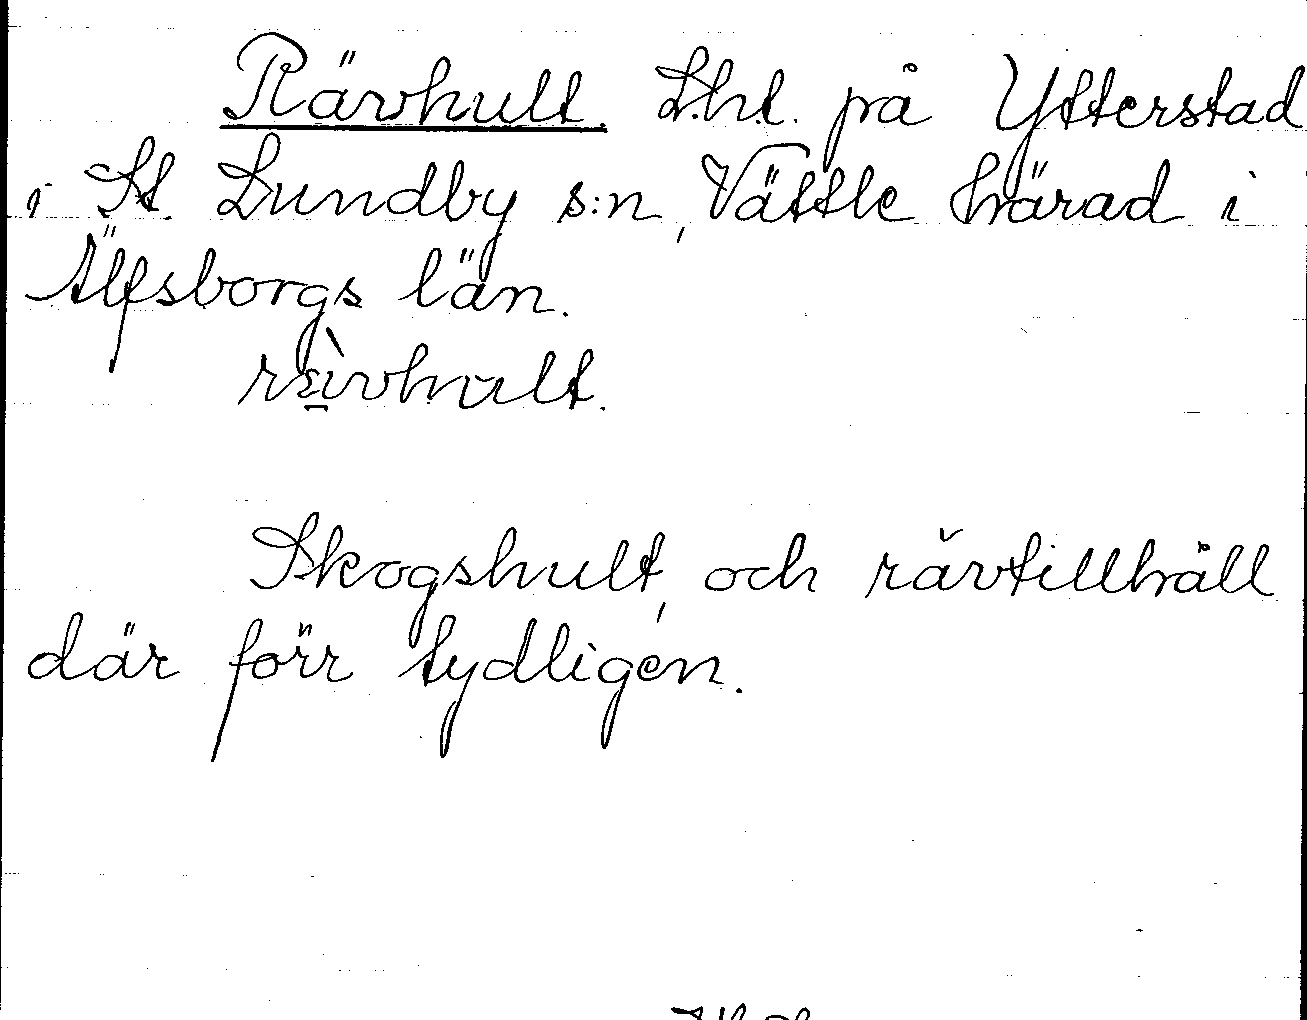 Rävhult. Lht. på Ytterstad
i St. Lundby s:n, Vättle härad i
Älfsborgs län.
rävhult.
Skogshult, och rävtillhåll
där förr tydligen.